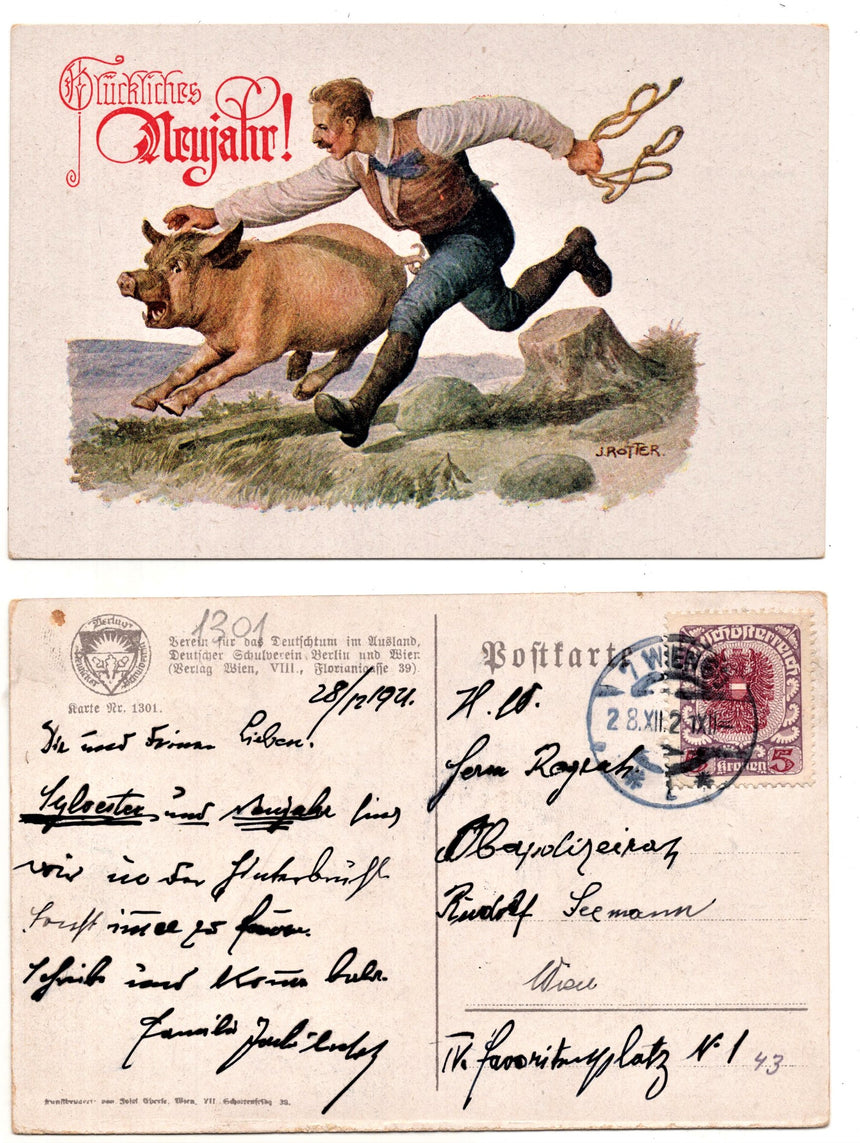 Glückliches
Neujahr!
J. ROTTER.
1301
Verlag
Deutscher
Schulverein
Verein für das Deutschtum im Ausland,
Deutscher Schulverein Berlin und Wien
(Verlag Wien, VIII., Florianigasse 39).
Karte Nr. 1301.
28/12 1921.
Dir und Deinen Lieben!
Sylvester und Neujahr sind
wir in der Hinterbrühl
sonst immer zu
Schreibe und komme bald.
Familie
Kunstdruckerei von Josef Eberle, Wien, VII. Schottenfeldg. 38.
Postkarte
WIEN
28.XII.21
Deutschösterreich
5 Kronen 5
Herrn
Oberpolizeirat
Rudolf Seemann
Wien
IV. Favoritenplatz Nº 1
43